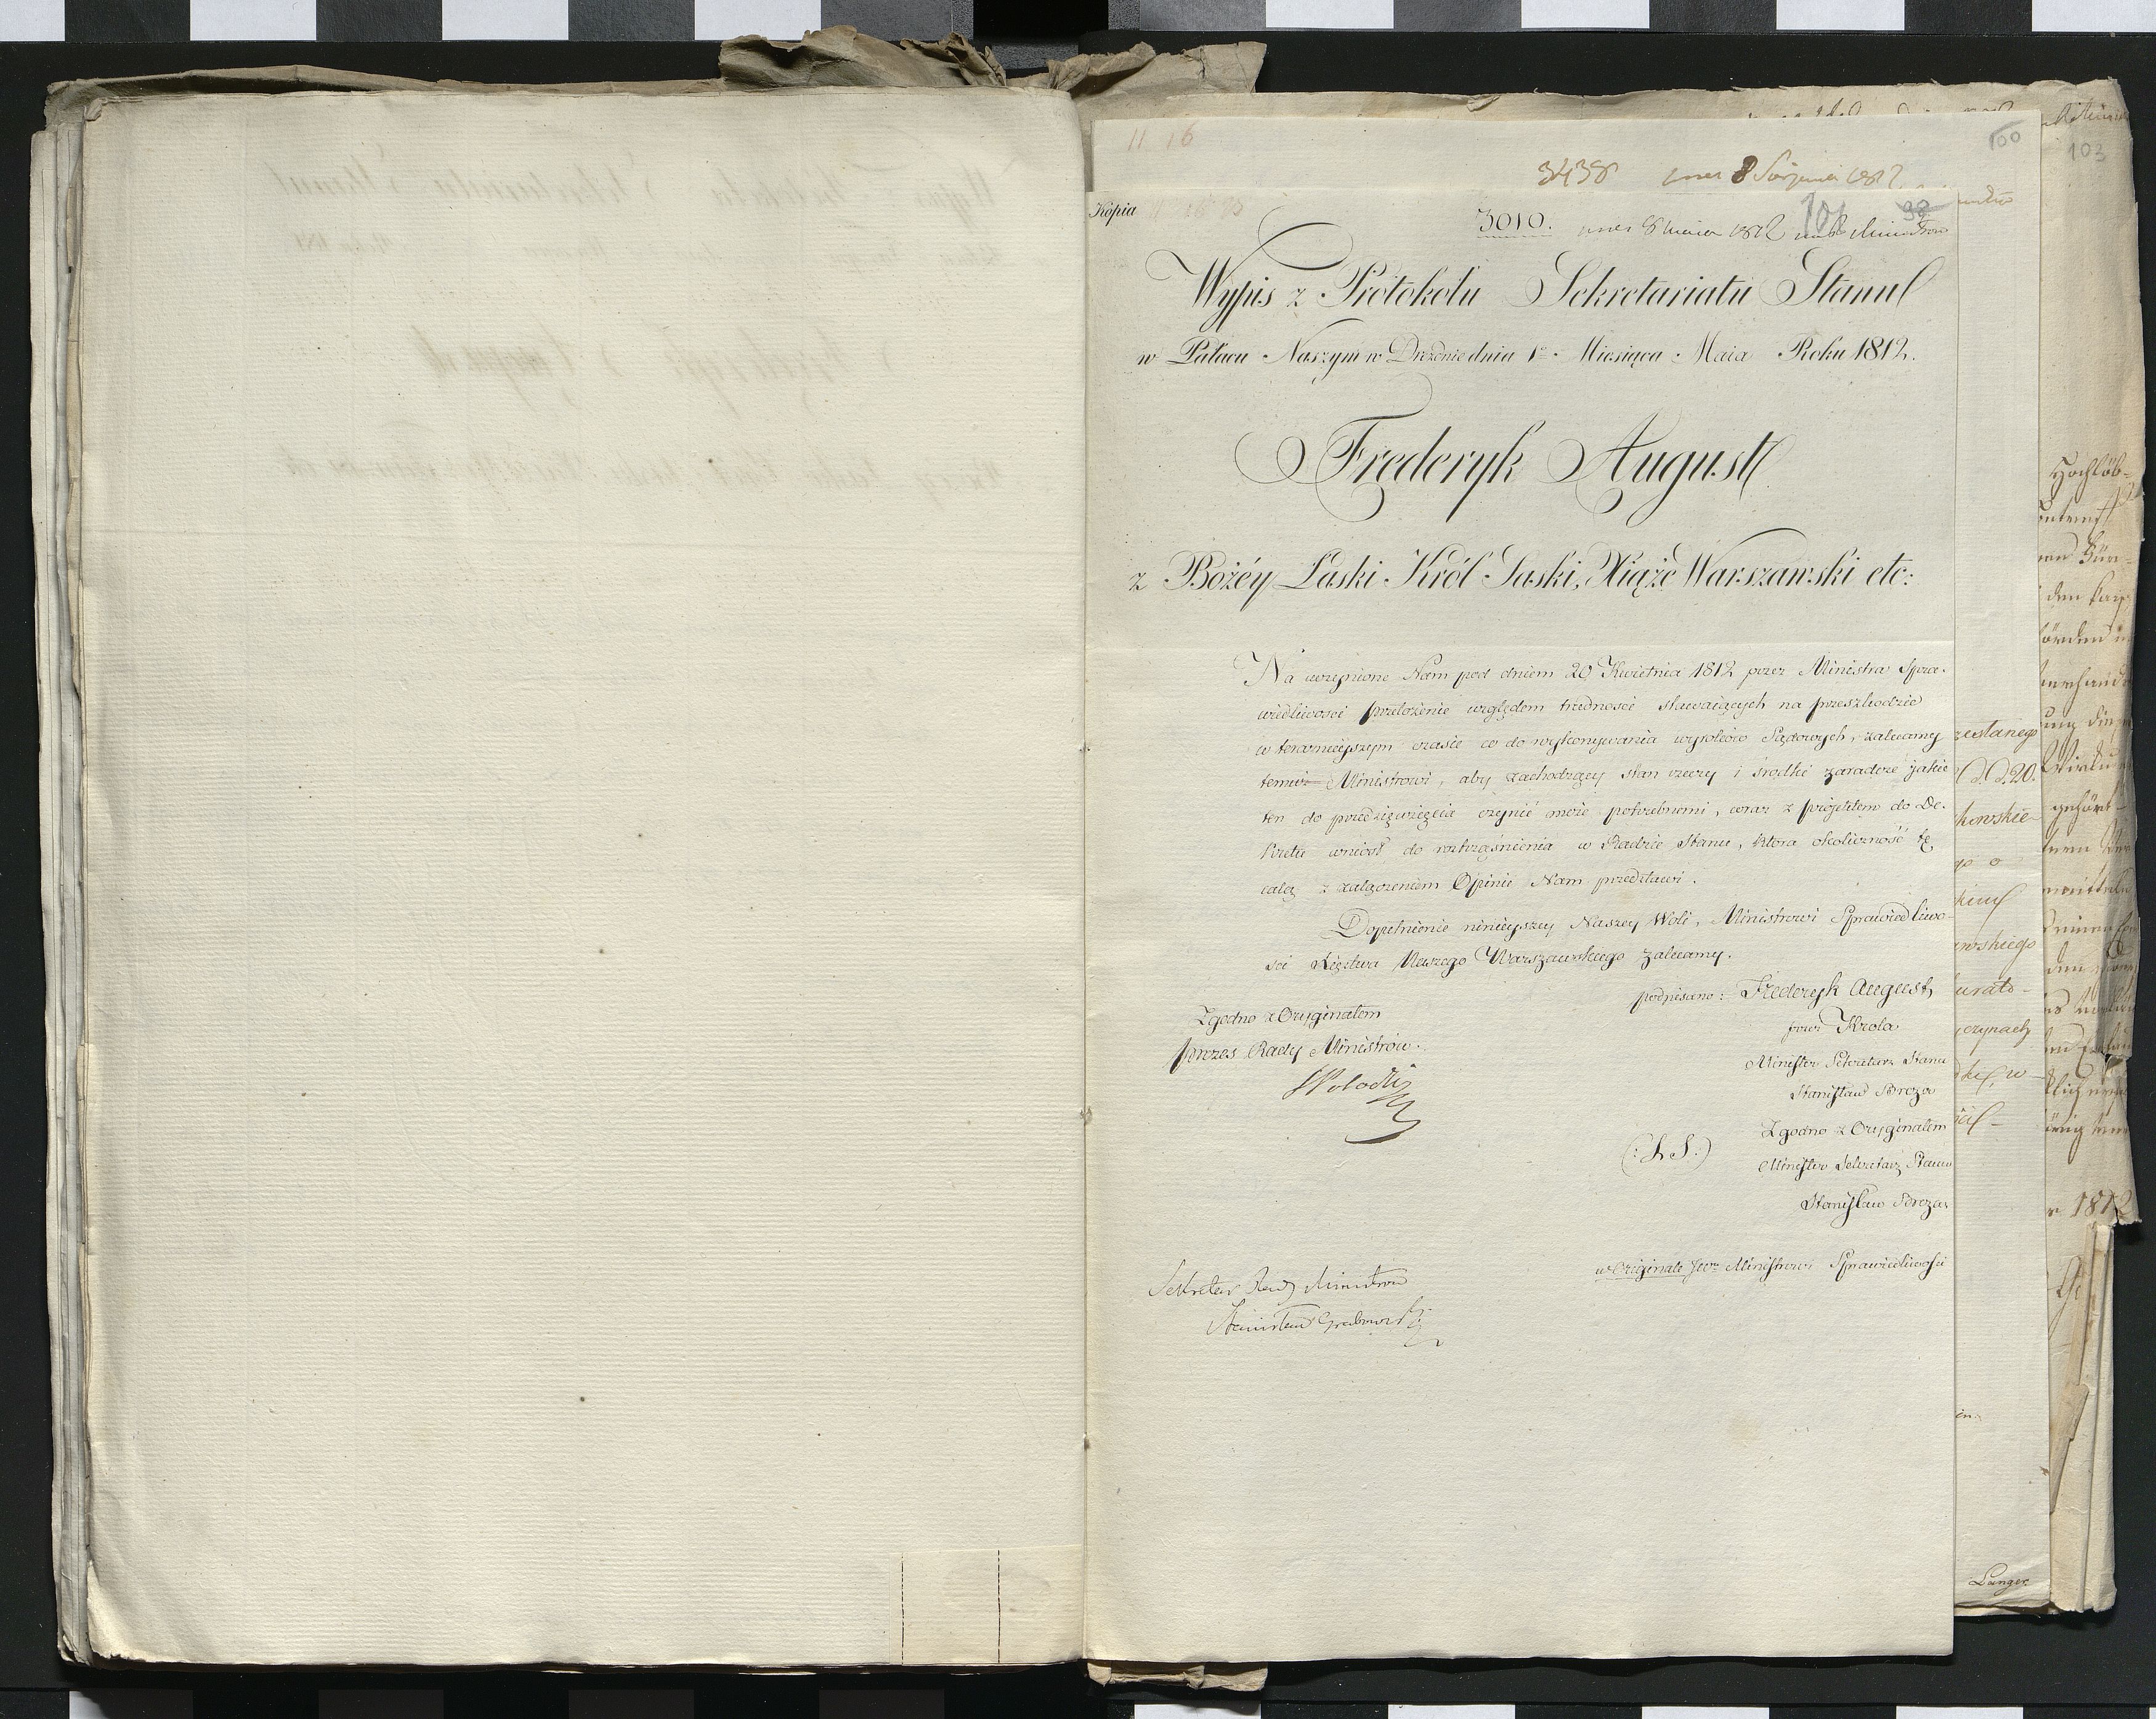 11 16
100
103
3438 8 Sierpnia 1812
Kopia
3010. 8 maia 1812 Ministrow
101 98
Wypis z Protokołu Sekretariatu Stanu
w Pałacu Naszym w Dreźnie dnia 1º Miesiąca Maia Roku 1812.
Frederyk August
z Bożéy Łaski Król Saski, Xiąże Warszawski etc:
Na uczynione Nam pod dniem 20 Kwietnia 1812 przez Ministra Spra-
wiedliwosci przełożenie względem trudnosci stawaiących na przeszkodzie
w teraznieyszym czasie co do wykonywania wyroków Sądowych, zalecamy
temuż Ministrowi, aby zachodzący stan rzeczy i srodki zaradcze jakie
ten do przedsięwzięcia czynić może potrzebnemi, wraz z projektem do De-
kretu wniosł do roztrząsnienia w Radzie Stanu, ktora okoliczność tę
całą z załączeniem Opinii Nam przedstawi.
Dopełnienie ninieyszey Naszey Woli, Ministrowi Sprawiedliwo-
sci Xięstwa Naszego Warszawskiego zalecamy.
podpisano: Frederyk August
przez Krola
Minister Sekretarz Stanu
Stanisław Breza
Zgodno z Oryginałem
prezes Rady Ministrów.
(:L.S:)
Zgodno z Oryginałem
Minister Sekretarz Stanu
Stanisław Breza
w Originale JWmu Ministrowi Sprawiedliwości
Sekretarz Rady Ministrow
Stanisław Grabowski
zesłanego
d. 20.
kowskie-
go o
wskiego
Hochlöb-
1812
Langer